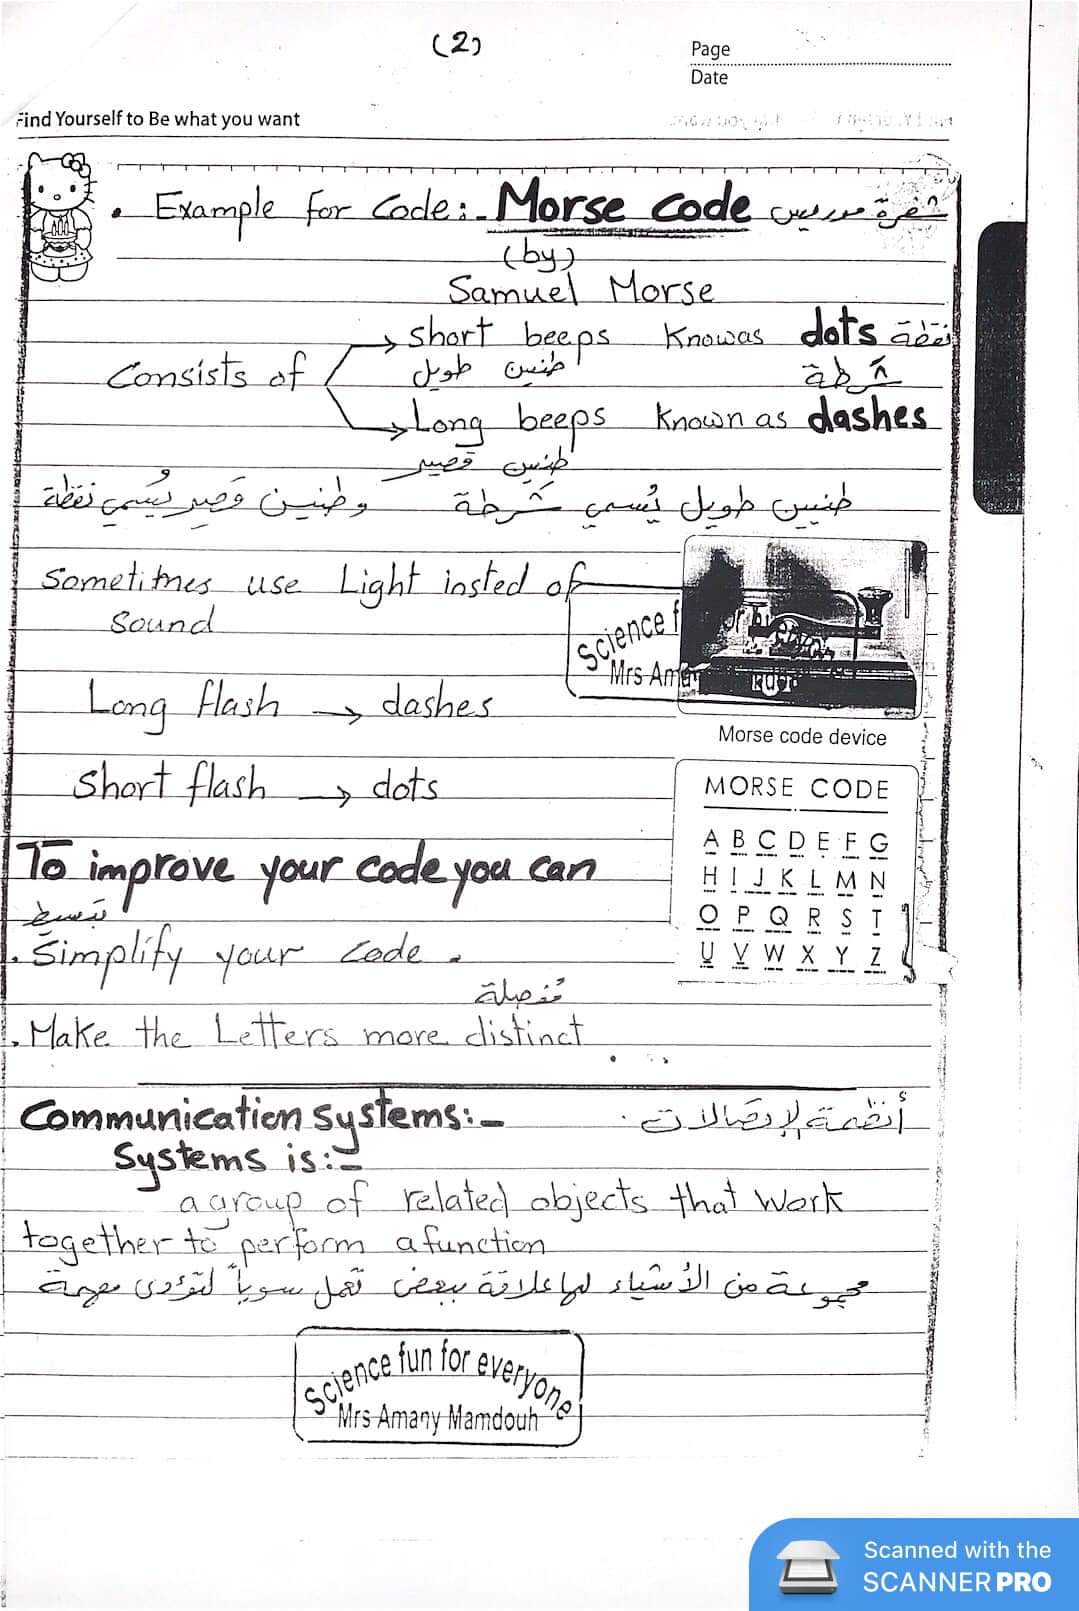 (2)
Page
Date
Find Yourself to Be what you want
. Example for Code:- Morse code شفرة موريس
(by)
Samuel Morse
Consists of
short beeps Knowas dots نقطة
طنين طويل شرطة
Long beeps known as dashes
طنين قصير
طنين طويل يُسمي شَرطة وطنين قَصير يُسمي نقطة
Sometimes use Light insted of
sound
Science f
Mrs Am
Long flash → dashes
Morse code device
Short flash → dots
MORSE CODE
A B C D E F G
H I J K L M N
O P Q R S T
U V W X Y Z
To improve your code you can
تبسيط
. Simplify your code .
مُنفصلة
. Make the Letters more distinct
Communication systems:-
أنظمة الإتصالات
Systems is:-
a group of related objects that work
together to perform a function
مجموعة من الأشياء لها علاقة ببعض تعمل سوياً لتؤدى مهمة
Science fun for everyone
Mrs Amany Mamdouh
Scanned with the
SCANNER PRO